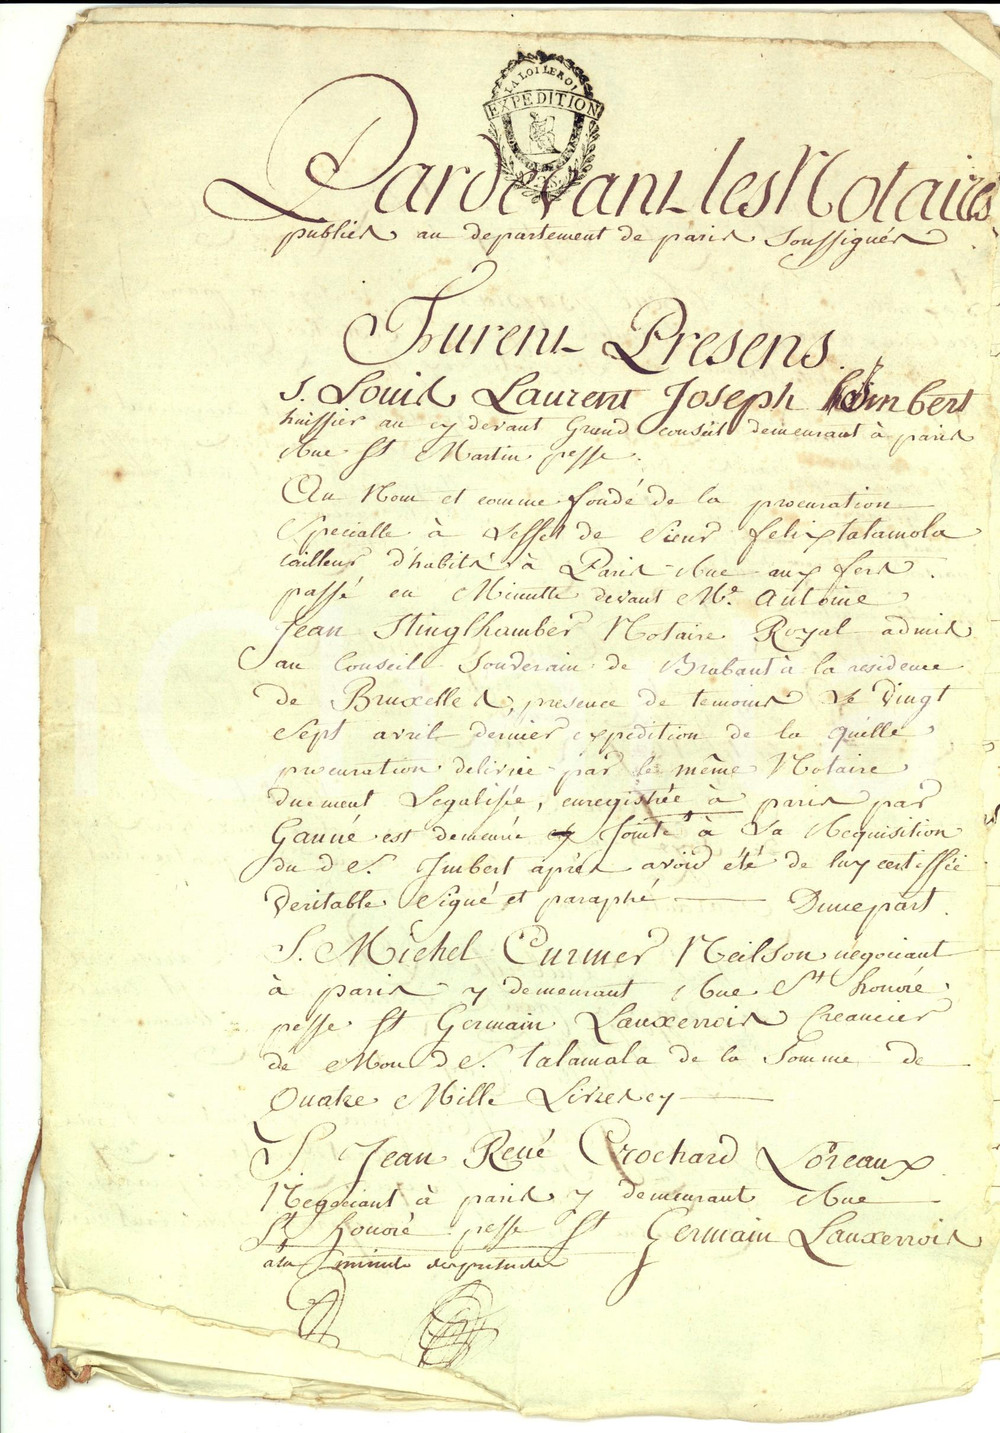 LA LOI LE ROI
EXPEDITION
Pardevant les Notaires
publics au departement de paris Soussignés
Furent Presens
S. Louis Laurent Joseph Imbert
huissier au cy devant Grand conseil demeurant à paris
Rue St Martin psse.
Au Nom et comme fondé de la procuration
Specialle à L'effet de Sieur felix talamola
tailleur d'habits à Paris Rue aux fers
passé en Minutte devant Me. Antoine
Jean Stinglhamber Notaire Royal admis
au Conseil Souverain de Brabant à la residence
de Bruxelles, presence de temoins Le Vingt
Sept avril dernier expedition de la quelle
procuration delivrée par le même Notaire
duement Legalisée, enregistrée à paris par
Ganné est demeurée Jointe à La Requisition
du d S. Imbert après avoir été de luy certiffiée
Veritable Signé et paraphé — D'une part.
S. Michel Curmer Neilson négociant
à paris y demeurant Rue St honoré
psse St Germain Lauxerrois Creancier
de Mon d S. talamala de la Somme de
Quatre Mille Livres cy —
S. Jean René Crochard Loreaux
Negociant à paris y demeurant Rue
St honoré psse St Germain Lauxerrois
a la minute